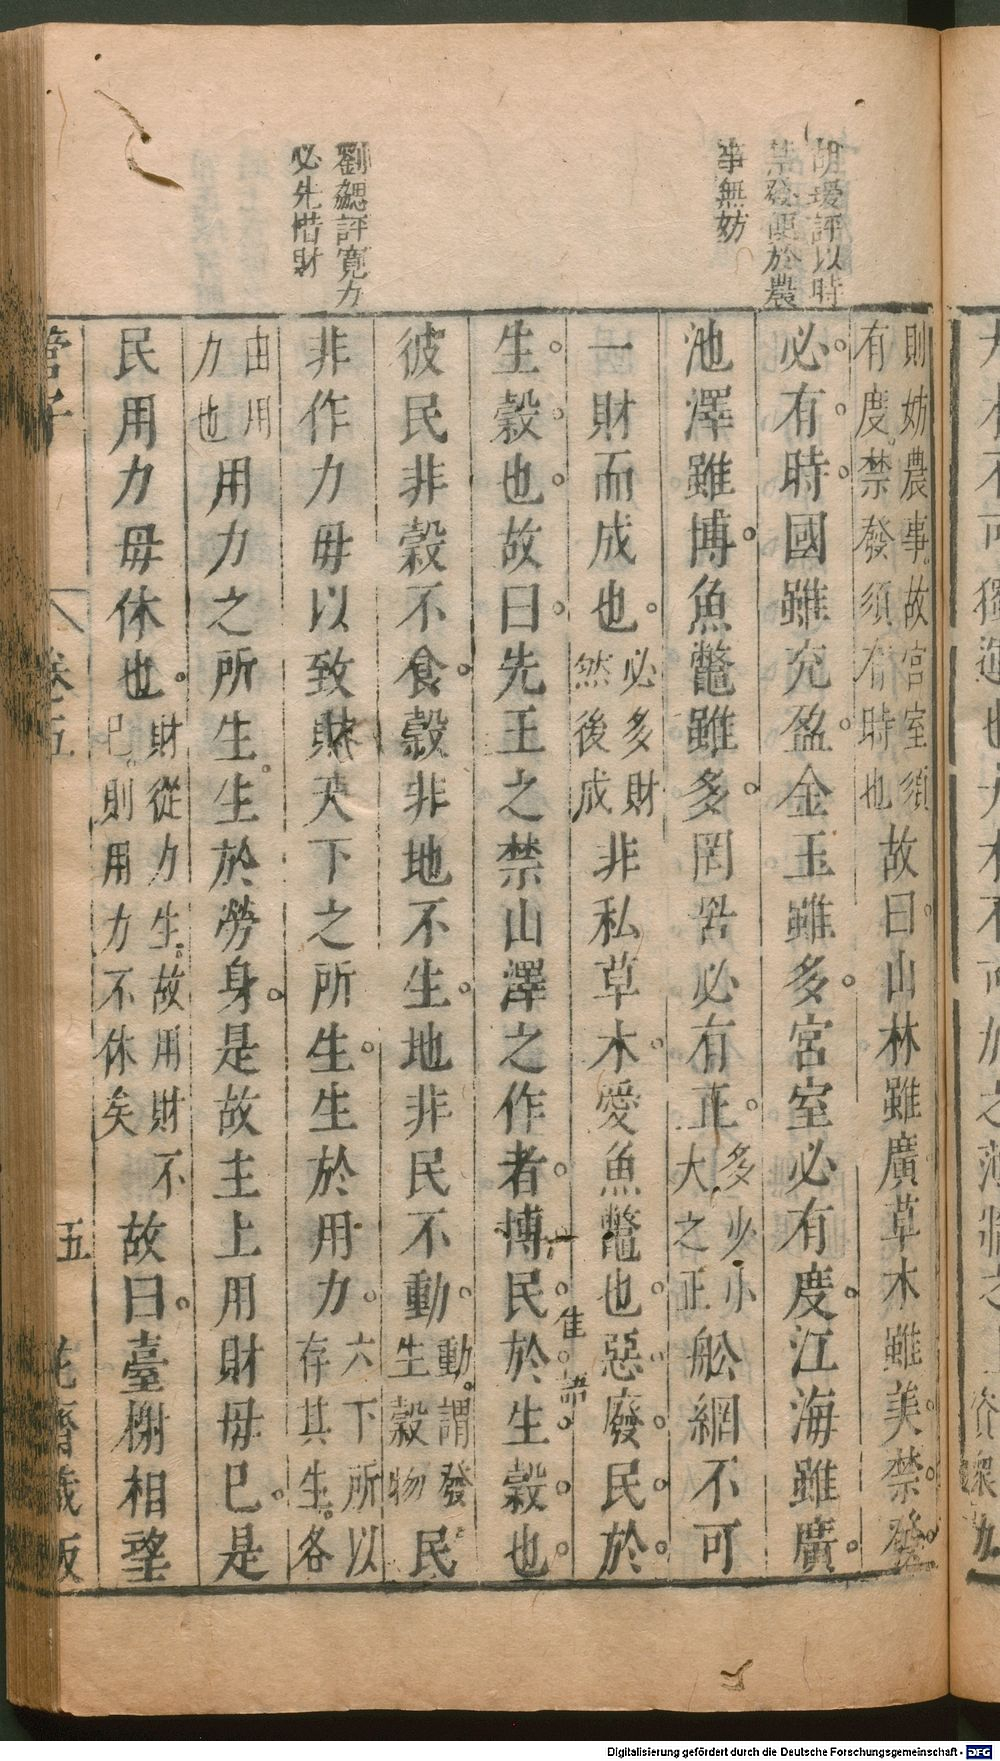 胡瑗評以時
禁發便於農
事無妨
劉勰評寬力
必先惜財
則妨農事故宮室須
有度禁發須有時也
故曰山林雖廣草木雖美禁發
必有時國雖充盈金玉雖多宮室必有度江海雖廣
池澤雖博魚鼈雖多罔罟必有正
多少小
大之正
船網不可
一財而成也
必多財
然後成
非私草木愛魚鼈也惡廢民於
生穀也故曰先王之禁山澤之作者博民於生穀也
佳語
彼民非穀不食穀非地不生地非民不動
動謂發
生穀物
民
非作力毋以致財天下之所生生於用力
六下所以
存其生各
由用
力也
用力之所生生於勞身是故主上用財毋巳是
民用力毋休也
財從力生故用財不
巳則用力不休矣
故曰臺榭相望
管子
卷五
五
花齋藏版
Digitalisierung gefördert durch die Deutsche Forschungsgemeinschaft - DFG